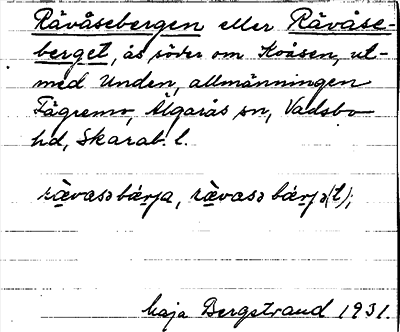 Rävåsebergen eller Rävåse-
berget, ås söder om Koåsen, ut-
med Unden, allmänningen
Tägremo, Älgarås sn, Vadsbo
hd, Skarab. l.
rä̀vasəbä́rja, rä̀vasə bä́rjə(t);
Maja Bergstrand 1931.